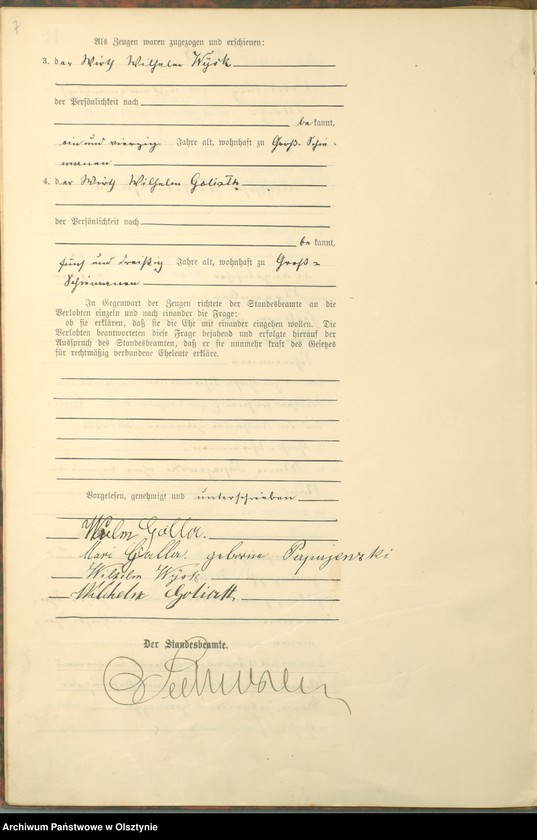 7
Als Zeugen waren zugezogen und erschienen:
3. der Wirth Wilhelm Wysk
der Persönlichkeit nach
be kannt,
ein und vierzig Jahre alt, wohnhaft zu Groß- Schie-
manen
4. der Wirth Wilhelm Goliath
der Persönlichkeit nach
be kannt,
fünf und dreißig Jahre alt, wohnhaft zu Groß-
Schiemanen
In Gegenwart der Zeugen richtete der Standesbeamte an die
Verlobten einzeln und nach einander die Frage:
ob sie erklären, daß sie die Ehe mit einander eingehen wollen. Die
Verlobten beantworteten diese Frage bejahend und erfolgte hierauf der
Ausspruch des Standesbeamten, daß er sie nunmehr kraft des Gesetzes
für rechtmäßig verbundene Eheleute erkläre.
Vorgelesen, genehmigt und unterschrieben
Galla.
Mari Galla. geborne
Wilhelm Wysk
Wilhelm Goliatt
Der Standesbeamte.
Archiwum Państwowe w Olsztynie